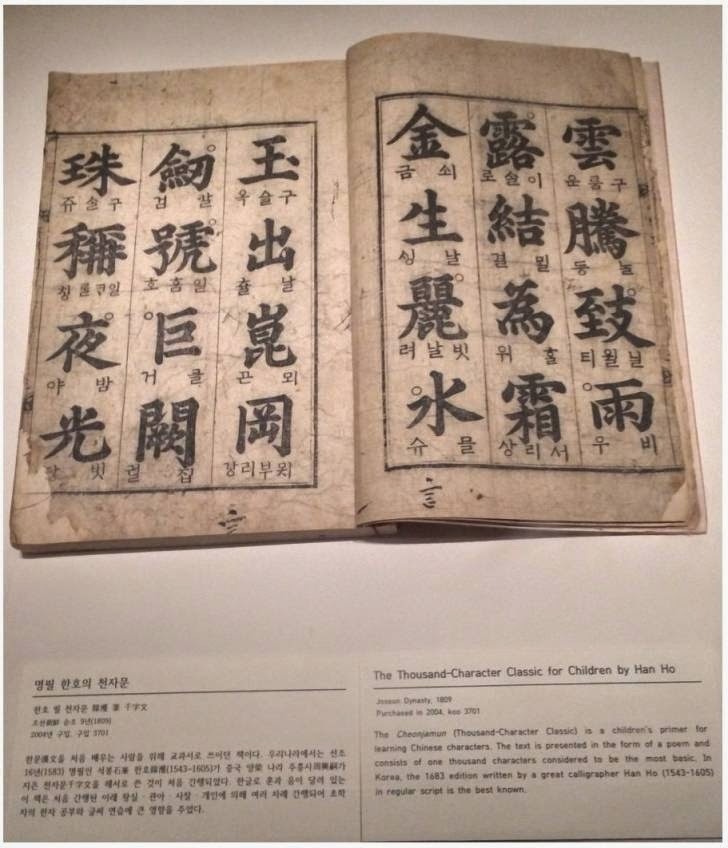 雲 구룸 운 騰 ᄂᆞᆯ 등 致 닐윌 티 雨 비 우
露 이슬 로 結 ᄆᆡᆯ 결 為 ᄒᆞᆯ 위 霜 서리 상
金 쇠 금 生 날 ᄉᆡᆼ 麗 빗날 려 水 믈 슈
玉 구슬 옥 出 날 츌 崑 뫼 곤 岡 묏부리 강
劒 검 號 일홈 호 巨 클 거 闕 집 궐
珠 구슬 쥬 稱 칭 夜 밤 야 光 빗
명필 한호의 천자문
한호 필 천자문 韓濩 筆 千字文
조선朝鮮 순조 9년(1809)
2004년 구입, 구입 3701
한문漢文을 처음 배우는 사람을 위해 교과서로 쓰이던 책이다. 우리나라에서는 선조
16년(1583) 명필인 석봉石峯 한호韓濩(1543-1605)가 중국 양梁 나라 주흥사周興嗣가
지은 천자문千字文을 해서로 쓴 것이 처음 간행되었다. 한글로 훈과 음이 달려 있는
이 책은 처음 간행된 이래 왕실·관아·사찰·개인에 의해 여러 차례 간행되어 초학
자의 한자 공부와 글씨 연습에 큰 영향을 주었다.
The Thousand-Character Classic for Children by Han Ho
Joseon Dynasty, 1809
Purchased in 2004, koo 3701
The Cheonjamun (Thousand-Character Classic) is a children's primer for
learning Chinese characters. The text is presented in the form of a poem and
consists of one thousand characters considered to be the most basic. In
Korea, the 1683 edition written by a great calligrapher Han Ho (1543-1605)
in regular script is the best known.